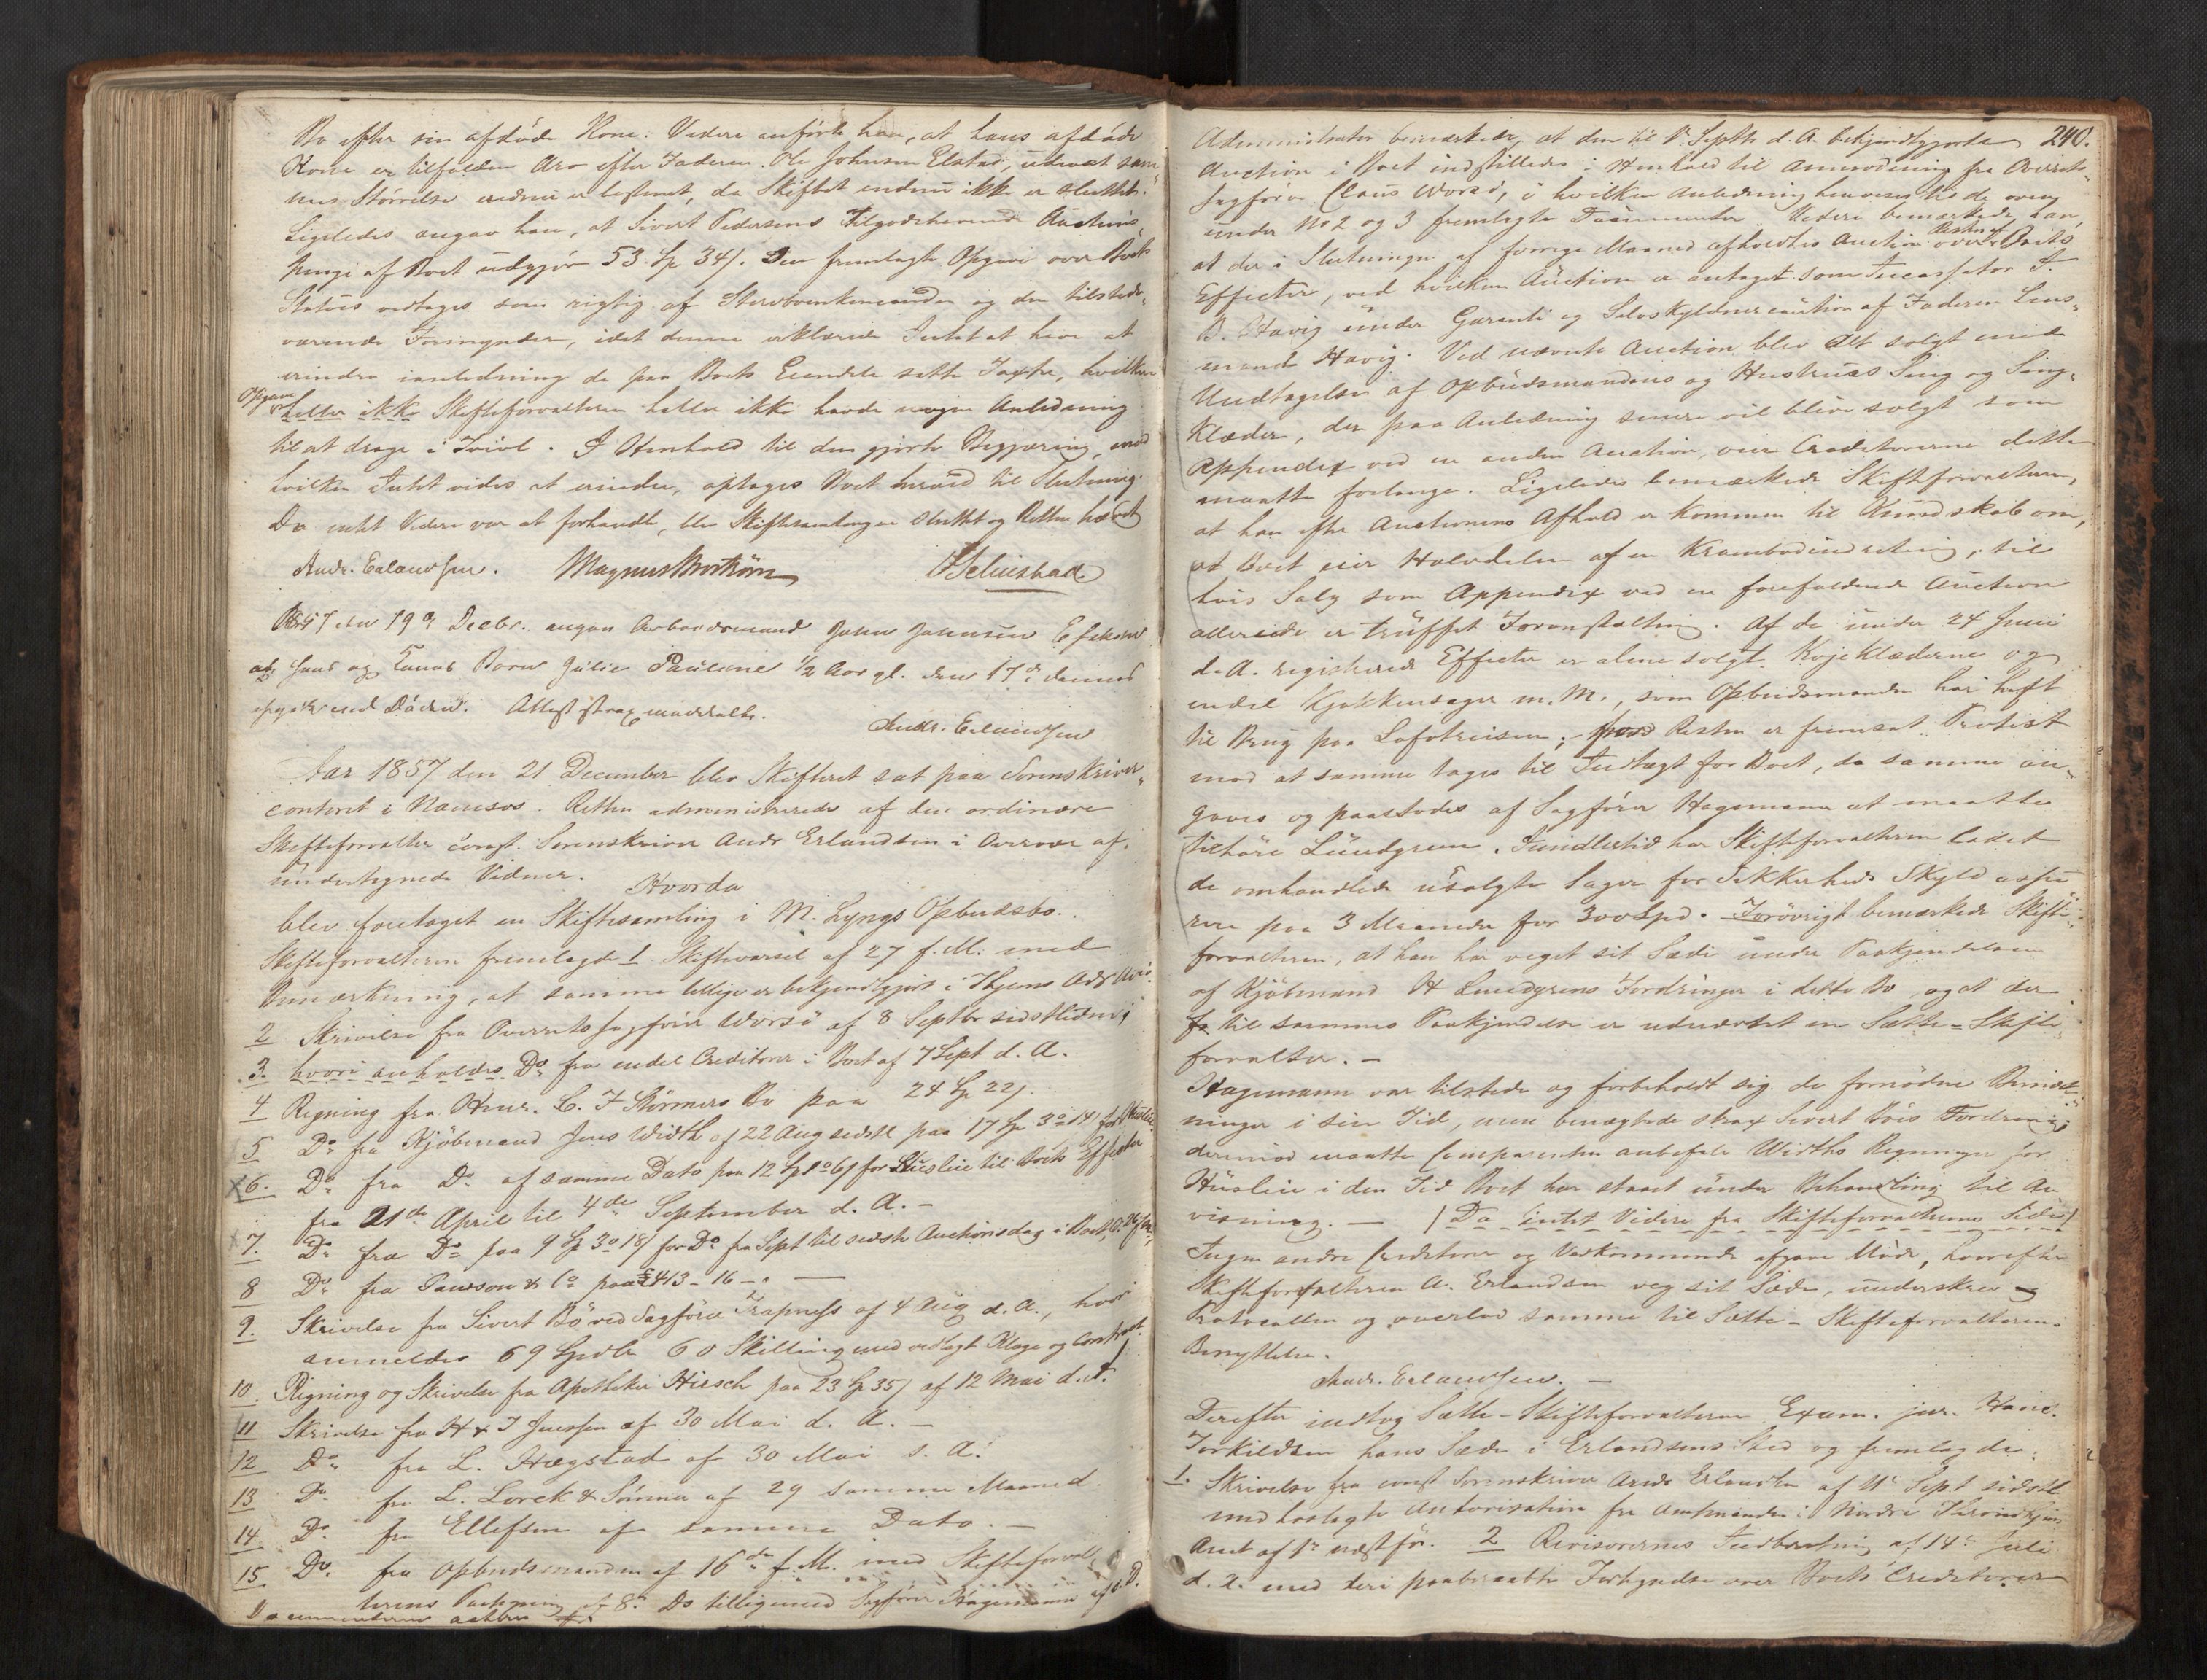 Bo efter sin afdöde Kone. Videre anförte han, at hans afdöde
Kone er tilfalden Arv efter Faderen Ole Johnsen Elstad, uden at sam-
mes Störrelse endnu er bestemt, da Skiftet endnu ikke er sluttet.
Ligeledes angav han, at Sivert Pedersens Tilgodehavende Auctions-
penge af Boet udgjör 53 Sp 34 s. Den fremlagte Opgave over Boets
Status vedtoges som rigtig af Stervboenkemanden og den tilstede-
værende Formynder, idet denne erklærede Intet at have at
erindre ianledning de paa Boets Eiendele satte Taxter, hvilken
Opgave
heller ikke Skifteforvalteren heller ikke havde nogen Anledning
til at drage i Tvivl. I Henhold til den gjorte Begjæring, mod
hvilken Intet vides at erindre, optages Boet hermed til Slutning.
Da intet Videre var at forhandle, blev Skiftesamlingen sluttet og Retten hævet
Andr. Erlandsen. Magnus
1857 den 19de Decbr. angav Arbeidsmand John Johnsen
at hans og Barn Julie Pauline ½ Aar gl. den 17de dennes
ved Döden. Attest strax meddeelt.
Andr. Erlandsen
Aar 1857 den 21 December blev Skifteret sat paa Sorenskriver-
contoret i Namsos. Retten administreredes af den ordinære
Skifteforvalter const. Sorenskriver Andr Erlandsen i Overvær af
undertegnede Vidner. Hvorda
blev foretaget en Skiftesamling i M. Lyngs Opbudsbo.
Skifteforvalteren fremlagde 1 Skiftevarsel af 27 f. M. med
Bemærkning, at samme tillige er bekjendtgjort i Thjems Adr Avis.
2 Skrivelse fra Overretssagförer Worsö af 8 Septbr sidstleden;
3. hvori anholdes Do fra endel Creditorer i Boet af 7 Sept d. A.
4 Regning fra Hmr. C. F Störmers Bo paa 24 Sp 22 s.
5 Do fra Kjöbmand Jens Width af 22 Aug sidstl paa 17 Sp 3 o 14 s for Huslie.
6. Do fra Do af samme Dato paa 12 Sp 1 o 6 s for Huslie til Boets Effecter
fra 21de April til 4de September d. A. –
7. Do fra Do paa 9 Sp 3 o 18 s for Do fra Sept til sidste Auctionsdag i Boet,
8 Do fra Pawson & Co paa £ 413 – 16 –
9. Skrivelse fra Sivert Bö ved Sagförer Trapness af 4 Aug d. A., hvor
anmeldes 69 Spdlr 60 Skilling med vedlagt Klage og Contract.
10. Regning og Skrivelse fra Apotheker Hirsch paa 23 Sp 35 s af 12 Mai d. A.
11 Skrivelse fra H & J Jenssen af 30 Mai d. A. –
12 Do fra L. Hægstad af 30 Mai s. A.
13 Do fra L. Lorck & Sönner af 29 samme Maaned.
14. Do fra Ellefsen af samme Dato. –
15. Do. fra Opbudsmanden af 16de f. M. med Skifteforval-
terens Paategning af 8. Do tilligemed Sagförer Hagemanns af s. D.
Documenterne
240.
Administrator bemærkede, at den til 1 Septbr d. A. bekjendtgjorte
Auction i Boet indstilledes i Henhold til Anmodning fra Overrets-
sagförer Claus Worsö, i hvilken Anledning henvises til de oven
under No 2 og 3 fremlagte Documenter. Videre bemærkede han,
at der i Slutningen af forrige Maaned afholdtes Auction over Resten af Boets
Effecter, ved hvilken Auction er antaget som Incassator T.
B. Havig under Garanti og Selvskyldnercaution af Faderen Lens-
mand Havig. Ved nævnte Auction blev Alt solgt med
Undtagelse af Opbudsmandens og Hustrues Seng og Seng-
klæder, der paa Anledning senere vil blive solgt som
Appendix ved en anden Auction, om Creditorerne dette
maatte forlange. Ligeledes bemærkede Skifteforvalteren,
at han efter Auctionens Afhold er kommen til Kundskab om,
at Boet eier Halvdelen af en Krambodindretning, til
hvis Salg som Appendix ved en forefaldende Auction
allerede er truffet Foranstaltning. Af de under 24 Juni
d. A. registrerede Effecter er alene solgt Kojeklæderne og
endel Kjøkkensager m. M., som Opbudsmanden har havt
til Brug paa Lofotreisen; Resten er fremsat Protest
mod at samme tages til Indtægt for Boet, da samme an-
gaves og paastodes af Sagförer Hagemann at maatte
tilhöre Lundgreen. Imidlertid har Skifteforvalteren ladet
de omhandlede usolgte Sager for Sikkerheds Skyld assu-
rere paa 3 Maaneder for 300 Spd. Forövrigt bemærkede Skifte-
forvalteren, at han har veget sit Sæde under Paakjendelsen
af Kjöbmand H Lundgrens Fordringer i dette Bo, og at der
fo til sammes Paakjendelse er udnævnt en Sætte-Skifte-
forvalter. –
Hagemann var tilstede og forbeholdt sig de fornödne Bemærk-
ninger i sin Tid, men benægtede strax Sivert Böes Fordring;
derimod maatte Comparenten anbefale Widths Regninger for
Huslie i den Tid Boet har staaet under Behandling til An
visning. – / Da intet Videre fra Skifteforvalterens Side /
Ingen andre Creditorer og Vedkommende afgave Möde, hvorefter
Skifteforvalteren A. Erlandsen veg sit Sæde, underskrev
Protocollen og overlod samme til Sætte-Skifteforvalterens
Benyttelse.
Andr. Erlandsen. –
Derefter indtog Sætte-Skifteforvalteren Exam. jur. Hans
Torkildsen hans Sæde i Erlandsens Sted og fremlagde:
1. Skrivelse fra const Sorenskriver Andr Erlandsen af 11te Sept sidstl
med hoslagte Autorisation fra Amtmanden i Nordre Throndhjems
Amt af 1ste næstför. 2 Revisorernes Indberetning af 14de Juli
d. A. med deri paaberaabte Fortegnelse over Boets Creditorer